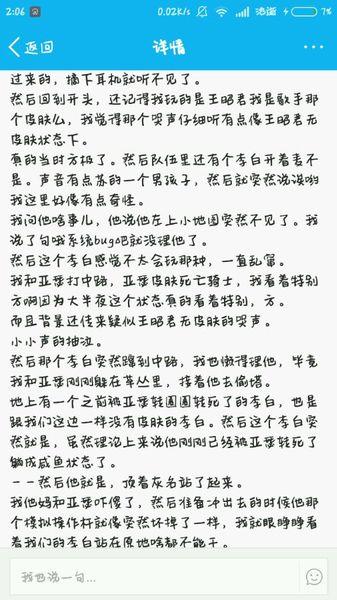 2:06
0.02K/s
7%
返回
详情
过来的，摘下耳机就听不见了。
然后回到开头，还记得我玩的是王昭君我是歌手那
个皮肤么，我觉得那个哭声仔细听有点像王昭君无
皮肤状态下。
真的当时方极了。然后队伍里还有个李白开着麦不
是。声音有点苏的一个男孩子，然后就突然说说哟
我这里好像有点奇怪。
我问他啥事儿，他说他在上小地图突然不见了。我
说了句哦系统bug吧就没理他了。
然后这个李白感觉不太会玩那种，一直乱窜。
我和亚瑟打中路，亚瑟皮肤死亡骑士，我看着特别
方啊因为大半夜这个状态真的看着特别，方。
而且背景还传来疑似王昭君无皮肤的哭声。
小小声的抽泣。
然后那个李白突然蹿到中路，我也懒得理他，毕竟
我和亚瑟刚刚躲在草丛里，接着他去偷塔。
地上有一个之前被亚瑟转圈圈转死了的李白，也是
跟我们这边一样没有皮肤的李白。然后这个李白突
然就是，虽然理论上来说他刚刚已经被亚瑟转死了
躺成咸鱼状态了。
－－然后他就是，顶着灰名站了起来。
我他妈和亚瑟吓傻了，然后准备冲出去的时候他那
个模拟操作杆就像突然坏掉了一样，我就眼睁睁看
着我们的李白站在原地啥都不能干。
我也说一句...